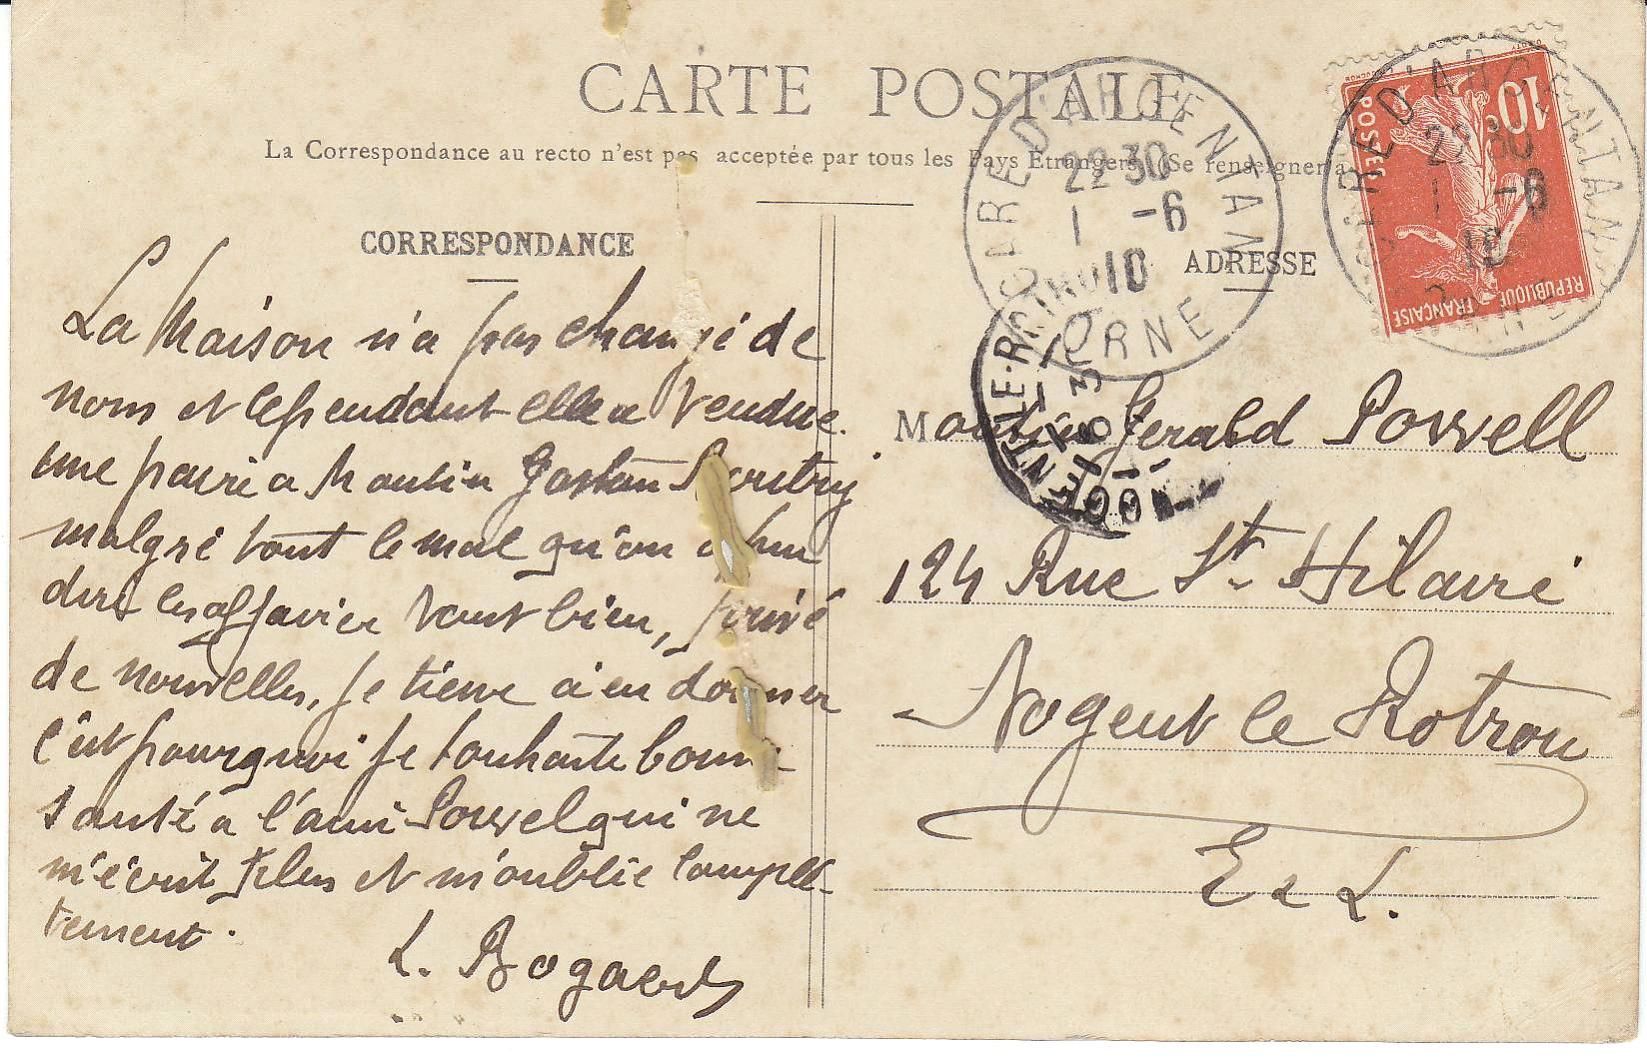 CARTE POSTALE
La Correspondance au recto n'est pas acceptée par tous les Pays Etrangers (Se renseigner à
CORRESPONDANCE
ADRESSE
La Maison n'a pas changé de
nom et cependant elle a vendue
une paire a Monsieur Gaston
malgré tout le mal qu'on a pu
dire les affaires vont bien, privé
de nouvelles, je tiens à en donner
c'est pourquoi je souhaite bonne
santé a l'ami Powel qui ne
m'écrit plus et m'oublie complè-
tement.
L. Bogaerts
Monsieur Gerald Powell
124 Rue St Hilaire
Nogent le Rotrou
E & L.
GARE D'ARGENTAN
22 30
1 -6
10
ORNE
GARE D'ARGENTAN
22 30
1 -6
10
10c
POSTES
REPUBLIQUE FRANÇAISE